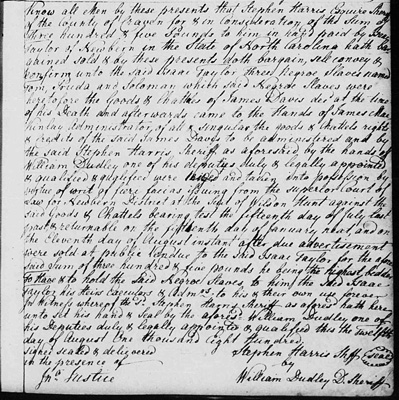 Know all Men by these presents that Stephen Harris Esquire Sheriff
of the County of Craven for & in Consideration of the Sum of
Three hundred & five Pounds to him in hand paid by Isaac
Taylor of Newbern in the State of North Carolina hath bar
gained sold & by these presents doth bargain, sell convey &
confirm unto the Said Isaac Taylor three Negroe Slaves named
Tom, and Soloman which Said Negroe Slaves were
heretofore the Goods & Chattels of James Daves at the time
of his Death and afterwards came to the Hands of James
Administrator, of all & singular the goods & Chattels rights
& credits of the said James Daves to be administered and by
the said Stephen Harris Sheriff as aforesaid by the hands of
William Dudley one of his deputies duly & legally appointed
& qualified & were and taken into possession by
virtue of writ of fieri facias issuing from the superior Court of
Law for Newbern District at the Suit of Wilson Hunt against the
said Goods & Chattels bearing test the fifteenth day of July last
past & returnable on the fifteenth day of January next, and on
the Eleventh day of August instant after due advertisement
were sold at public vendue to the Said Isaac Taylor for the afore
Said Sum of three hundred & five pounds he being the highest bidder
To Have & to hold the Said Negroe Slaves, to him the Said Isaac
Taylor his Heirs Executors & Admrs to his & their own use forever
In witness whereof the Said Stephen Harris Sheriff as aforesd hath here
unto set his hand & Seal by the aforesd William Dudley one of
his Deputies duly & legally appointed & qualified this the twelfth
day of August One thousand Eight Hundred
signed sealed & delivered Stephen Harris Shff seal
in the presence of by
Jno. Justice William Dudley D. Sheriff